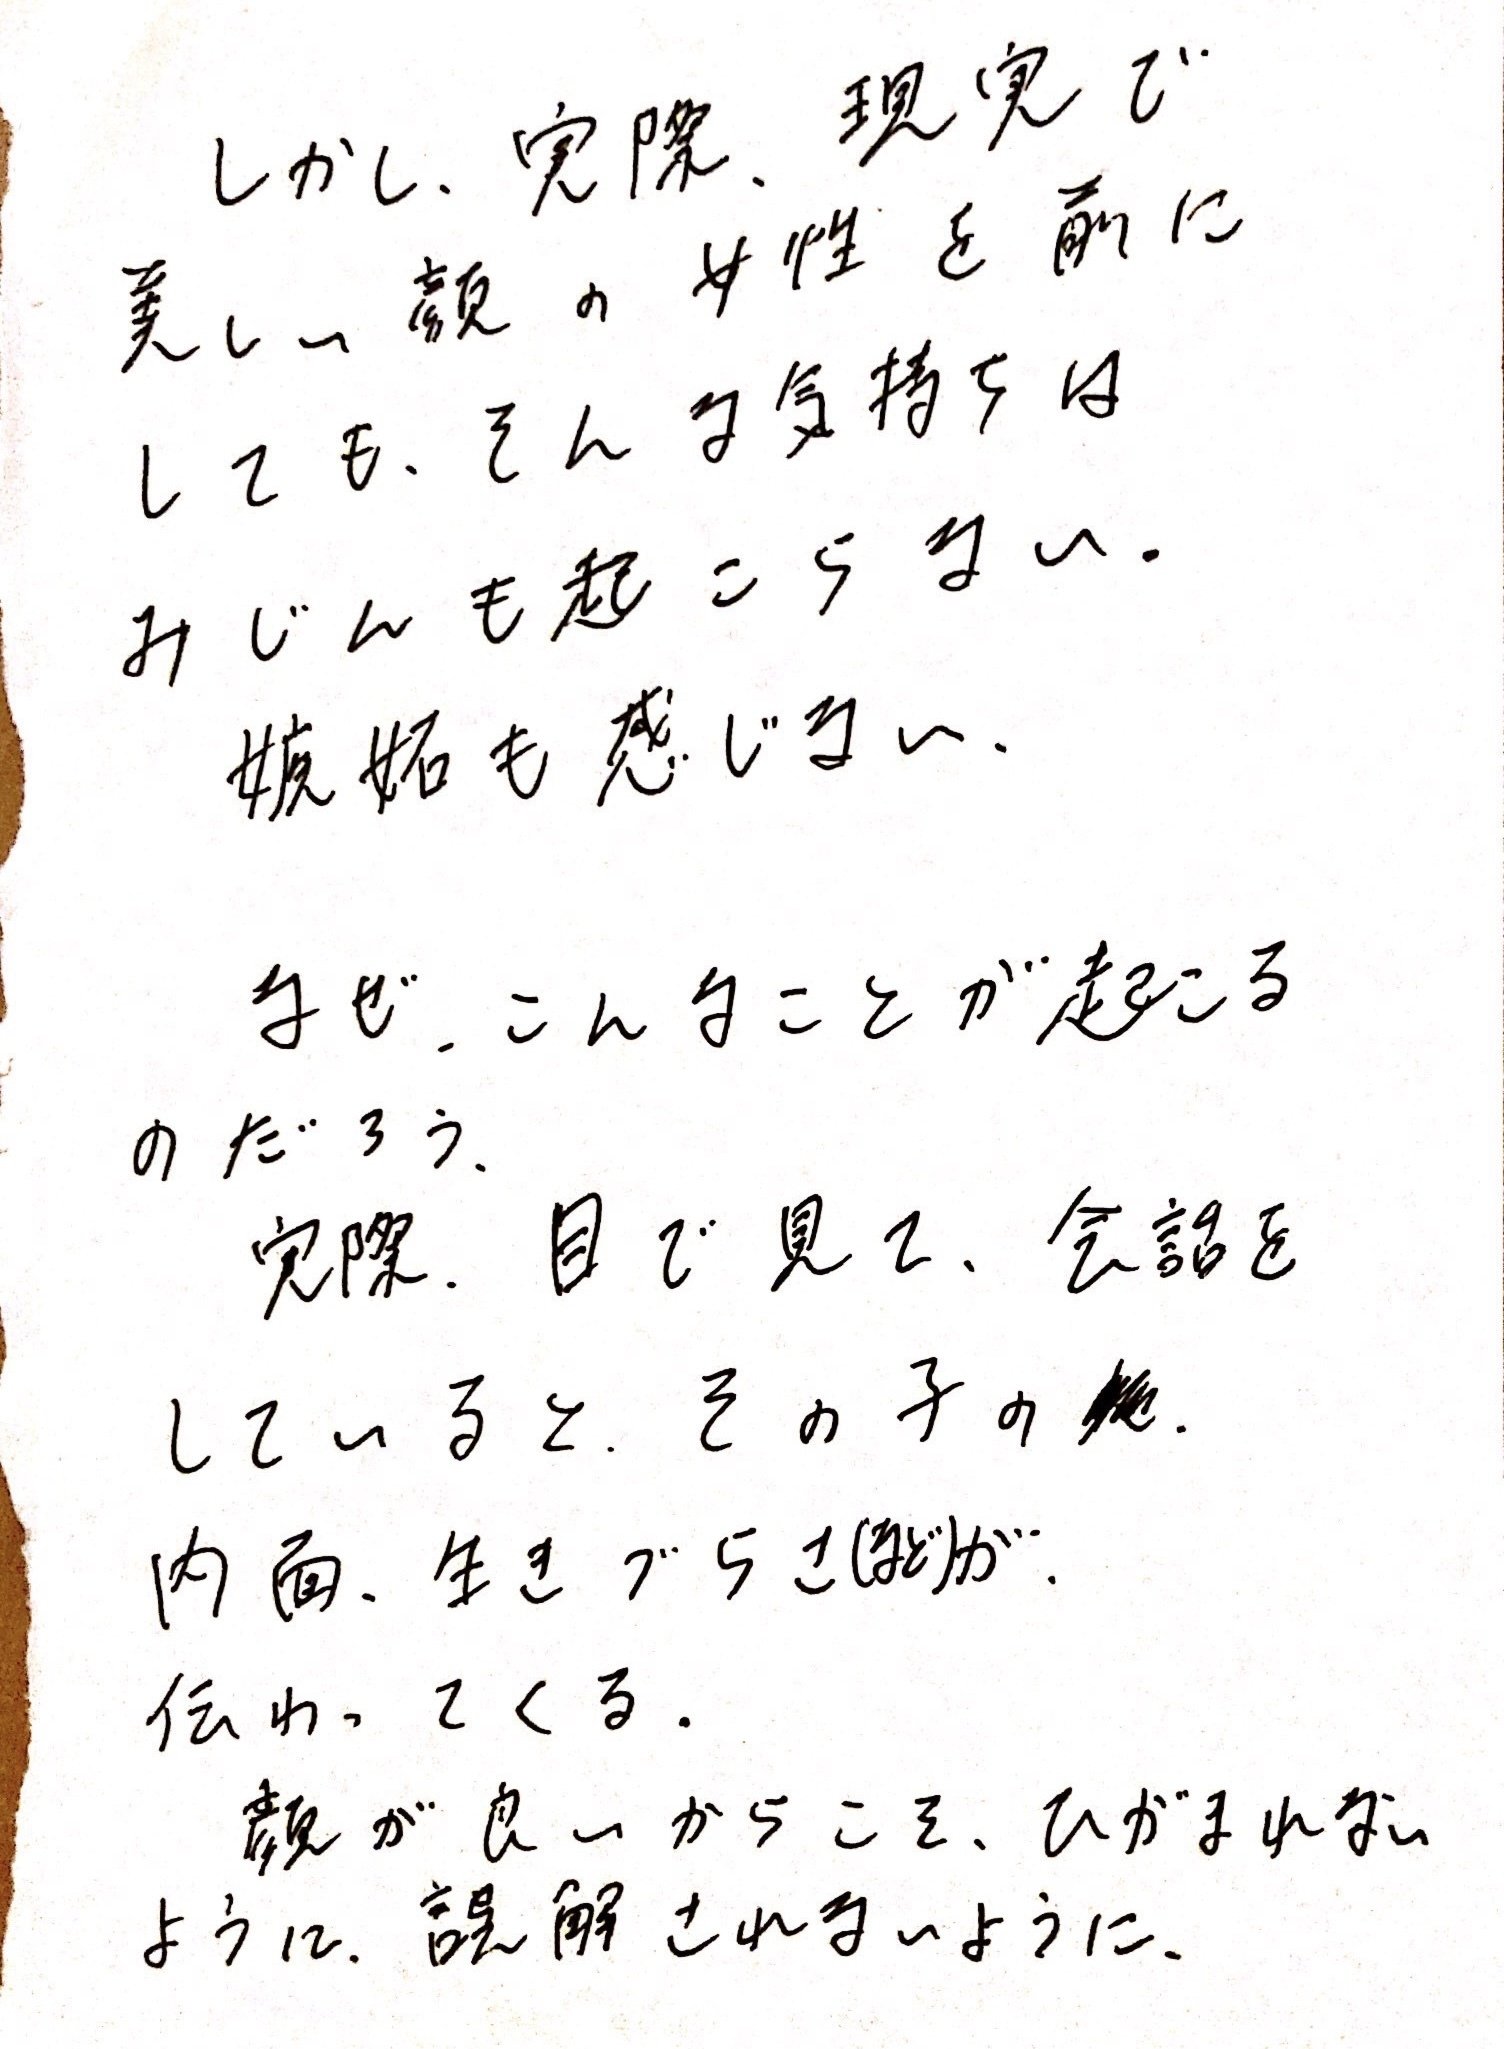 しかし、実際、現実で
美しい顔の女性を前に
しても、そんな気持ちは
みじんも起こらない。
嫉妬も感じない、
なぜ、こんなことが起こる
のだろう、
実際、目で見て、会話を
していると、その子の、
内面、生きづらさ(ほど)が、
伝わってくる。
顔が良いからこそ、ひがまれない
ように、誤解されないように、